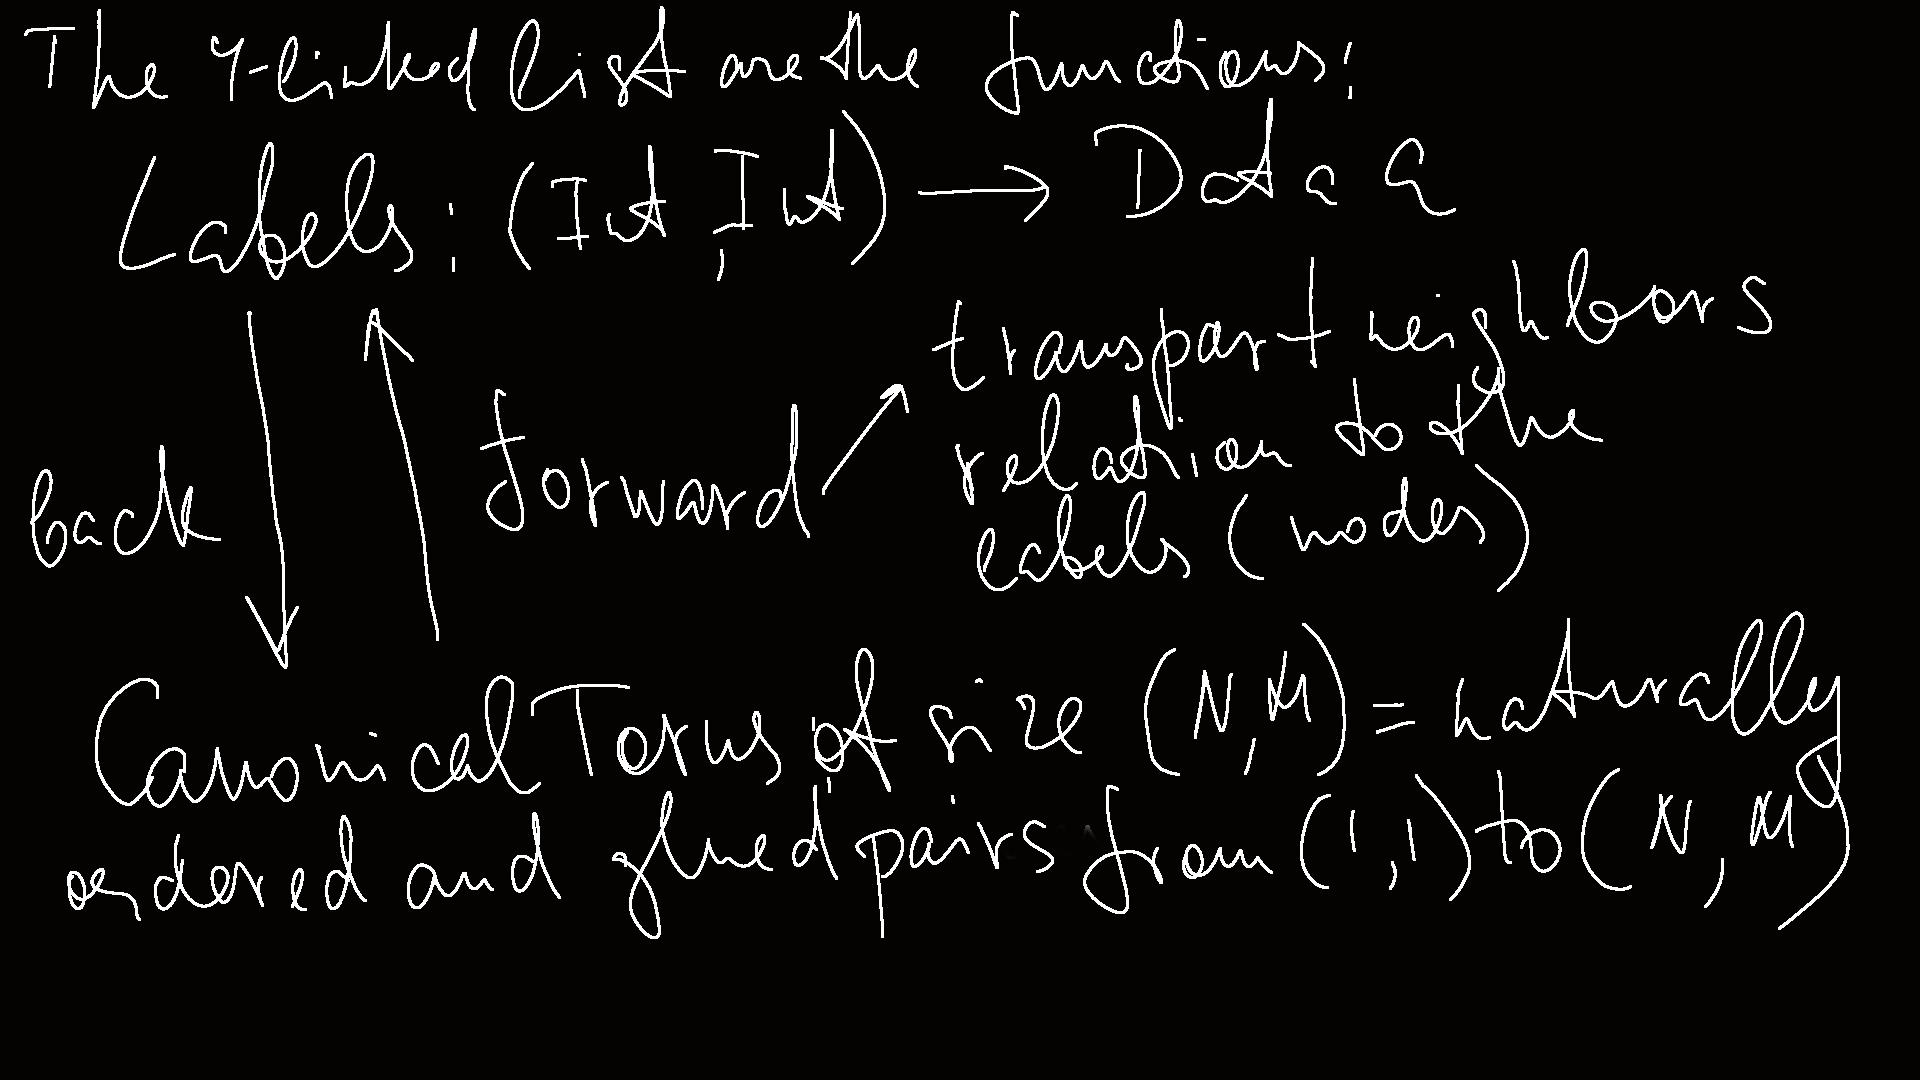 The 4-linked list are the functions:
Labels: (Int, Int) → Data a
transport neighbors
relation to the
labels (nodes)
back
forward
Canonical Torus of size (N,M) = naturally
ordered and glued pairs from (1,1) to (N,M)